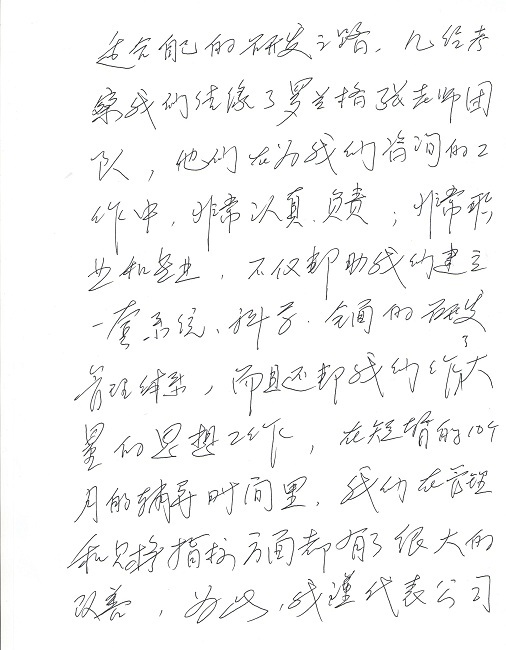 适合自己的研发之路。几经考
察我们结缘了罗兰格张老师团
队，他们在为我们咨询的工
作中，非常认真、负责；非常职
业和专业，不仅帮助我们建立
一套系统、科学、全面的研发
管理体系，而且还帮我们作了大
量的思想工作，在短暂的10个
月的辅导时间里，我们在管理
和 指标方面都有了很大的
改善，为此，我谨代表公司